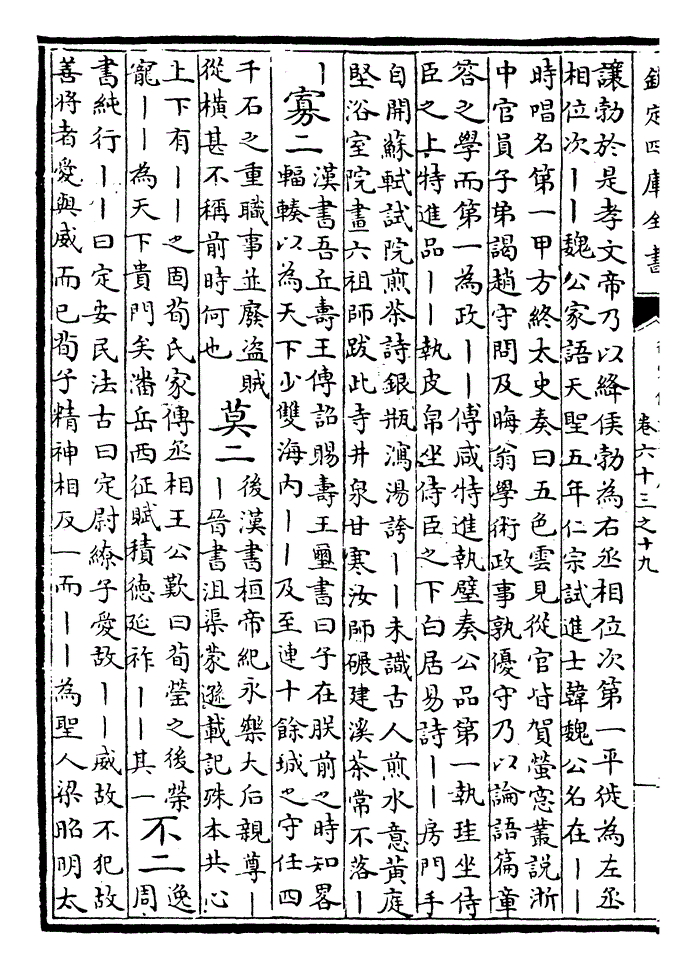 欽定四庫全書
卷六十三之十九
讓勃於是孝文帝乃以絳侯勃為右丞相位次第一平徙為左丞
相位次丨丨魏公家語天聖五年仁宗試進士韓魏公名在丨丨
時唱名第一甲方終太史奏曰五色雲見從官皆賀螢窓叢說浙
中官員子弟謁趙守問及晦翁學術政事孰優守乃以論語篇章
答之學而第一為政丨丨傅咸特進執璧奏公品第一執珪坐侍
臣之上特進品丨丨執皮帛坐侍臣之下白居易詩丨丨房門手
自開蘇軾試院煎茶詩銀瓶瀉湯誇丨丨未識古人煎水意黃庭
堅浴室院畫六祖師跋此寺井泉甘寒汝師碾建溪茶常不落丨
丨
寡二
漢書吾丘壽王傳詔賜壽王璽書曰子在朕前之時知畧
輻輳以為天下少雙海内丨丨及至連十餘城之守任四
千石之重職事並廢盜賊
從橫甚不稱前時何也
莫二
後漢書桓帝紀永樂大后親尊丨
丨晉書沮渠蒙遜載記殊本共心
上下有丨丨之固荀氏家傳丞相王公歎曰荀瑩之後榮
寵丨丨為天下貴門矣潘岳西征賦積德延祚丨丨其一
不二
逸
周
書純行丨丨曰定安民法古曰定尉繚子愛故丨丨威故不犯故
善將者愛與威而已荀子精神相反一而丨丨為聖人梁昭明太